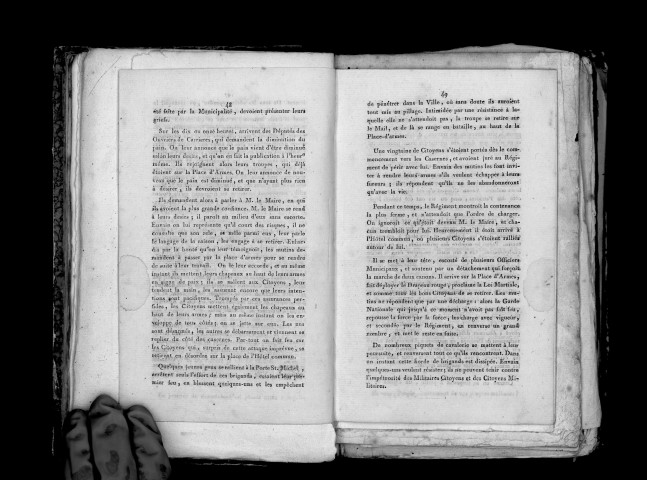 48
été faite par la Municipalité, devoient présenter leurs
griefs.
Sur les dix ou onze heures, arrivent des Députés des
Ouvriers de Carrieres, qui demandent la diminution du
pain. On leur annonce que le pain vient d'être diminué
selon leurs desirs, et qu'on en fait la publication à l'heure
même. Ils rejoignent alors leurs troupes, qui déjà
étoient sur la Place d'Armes. On leur annonce de nou-
veau que le pain est diminué, et que n'ayant plus rien
à desirer, ils devroient se retirer.
Ils demandent alors à parler à M. le Maire, en qui
ils avoient la plus grande confiance. M. le Maire se rend
à leurs desirs; il paroît au milieu d'eux sans escorte.
Envain on lui représente qu'il court des risques, il ne
consulte que son zele, se mêle parmi eux, leur parle
le langage de la raison, les engage à se retirer. Enhar-
dis par la bonté qu'on leur témoignoit, les mutins de-
mandent à passer par la place d'armes pour se rendre
de suite à leur travail. On le leur accorde, et au même
instant ils mettent leurs chapeaux au bout de leurs armes
en signe de paix; ils se mêlent aux Citoyens, leur
tendent la main, les assurent encore que leurs inten-
tions sont pacifiques. Trompés par ces assurances per-
fides, les Citoyens mettent également les chapeaux au
bout de leurs armes; mais au même instant on les en-
veloppe de tous côtés; on se jette sur eux. Les uns
sont désarmés, les autres se débarrassent et viennent se
replier du côté des casernes. Par-tout on fait feu sur
les Citoyens qui, surpris de cette attaque imprévue, se
retirent en désordre sur la place de l'Hôtel commun.
Quelques jeunes gens se rallient à la Porte St. Michel,
arrêtent seuls l'effort de ces brigands, essuient leur pre-
mier feu, en blessent quelques-uns et les empêchent
49
de pénétrer dans la Ville, où sans doute ils auroient
tout mis au pillage. Intimidée par une résistance à la-
quelle elle ne s'attendoit pas, la troupe se retire sur
le Mail, et de là se range en bataille, au haut de la
Place-d'armes.
Une vingtaine de Citoyens s'étoient portés dès le com-
mencement vers les Casernes, et avoient juré au Régi-
ment de périr avec lui. Envain des mutins les font invi-
ter à rendre leurs armes s'ils veulent échapper à leurs
fureurs; ils répondent qu'ils ne les abandonneront
qu'avec la vie.
Pendant ce temps, le Régiment montroit la contenance
la plus ferme, et n'attendoit que l'ordre de charger.
On ignoroit ce qu'étoit devenu M. le Maire, et cha-
cun trembloit pour lui. Heureusement il étoit arrivé à
l'Hôtel commun, où plusieurs Citoyens s'étoient ralliés
autour de lui.
Il se met à leur tête, escorté de plusieurs Officiers
Municipaux, et soutenu par un détachement qui forçoit
la marche de deux canons. Il arrive sur la Place d'Armes,
fait déployer le Drapeau rouge, proclame la Loi Martiale,
et somme tous les bons Citoyens de se retirer. Les mu-
tins ne répondent que par une décharge: alors la Garde
Nationale qui jusqu'à ce moment n'avoit pas fait feu,
repousse la force par la force, les charge avec vigueur,
et secondée par le Régiment, en renverse un grand
nombre, et met le reste en fuite.
De nombreux piquets de cavalerie se mettent à leur
poursuite, et renversent tout ce qu'ils rencontrent. Dans
un instant cette horde de brigands est dissipée. Envain
quelques-uns veulent résister; ils ne peuvent tenir contre
l'impétuosité des Militaires Citoyens et des Citoyens Mi-
litaires.